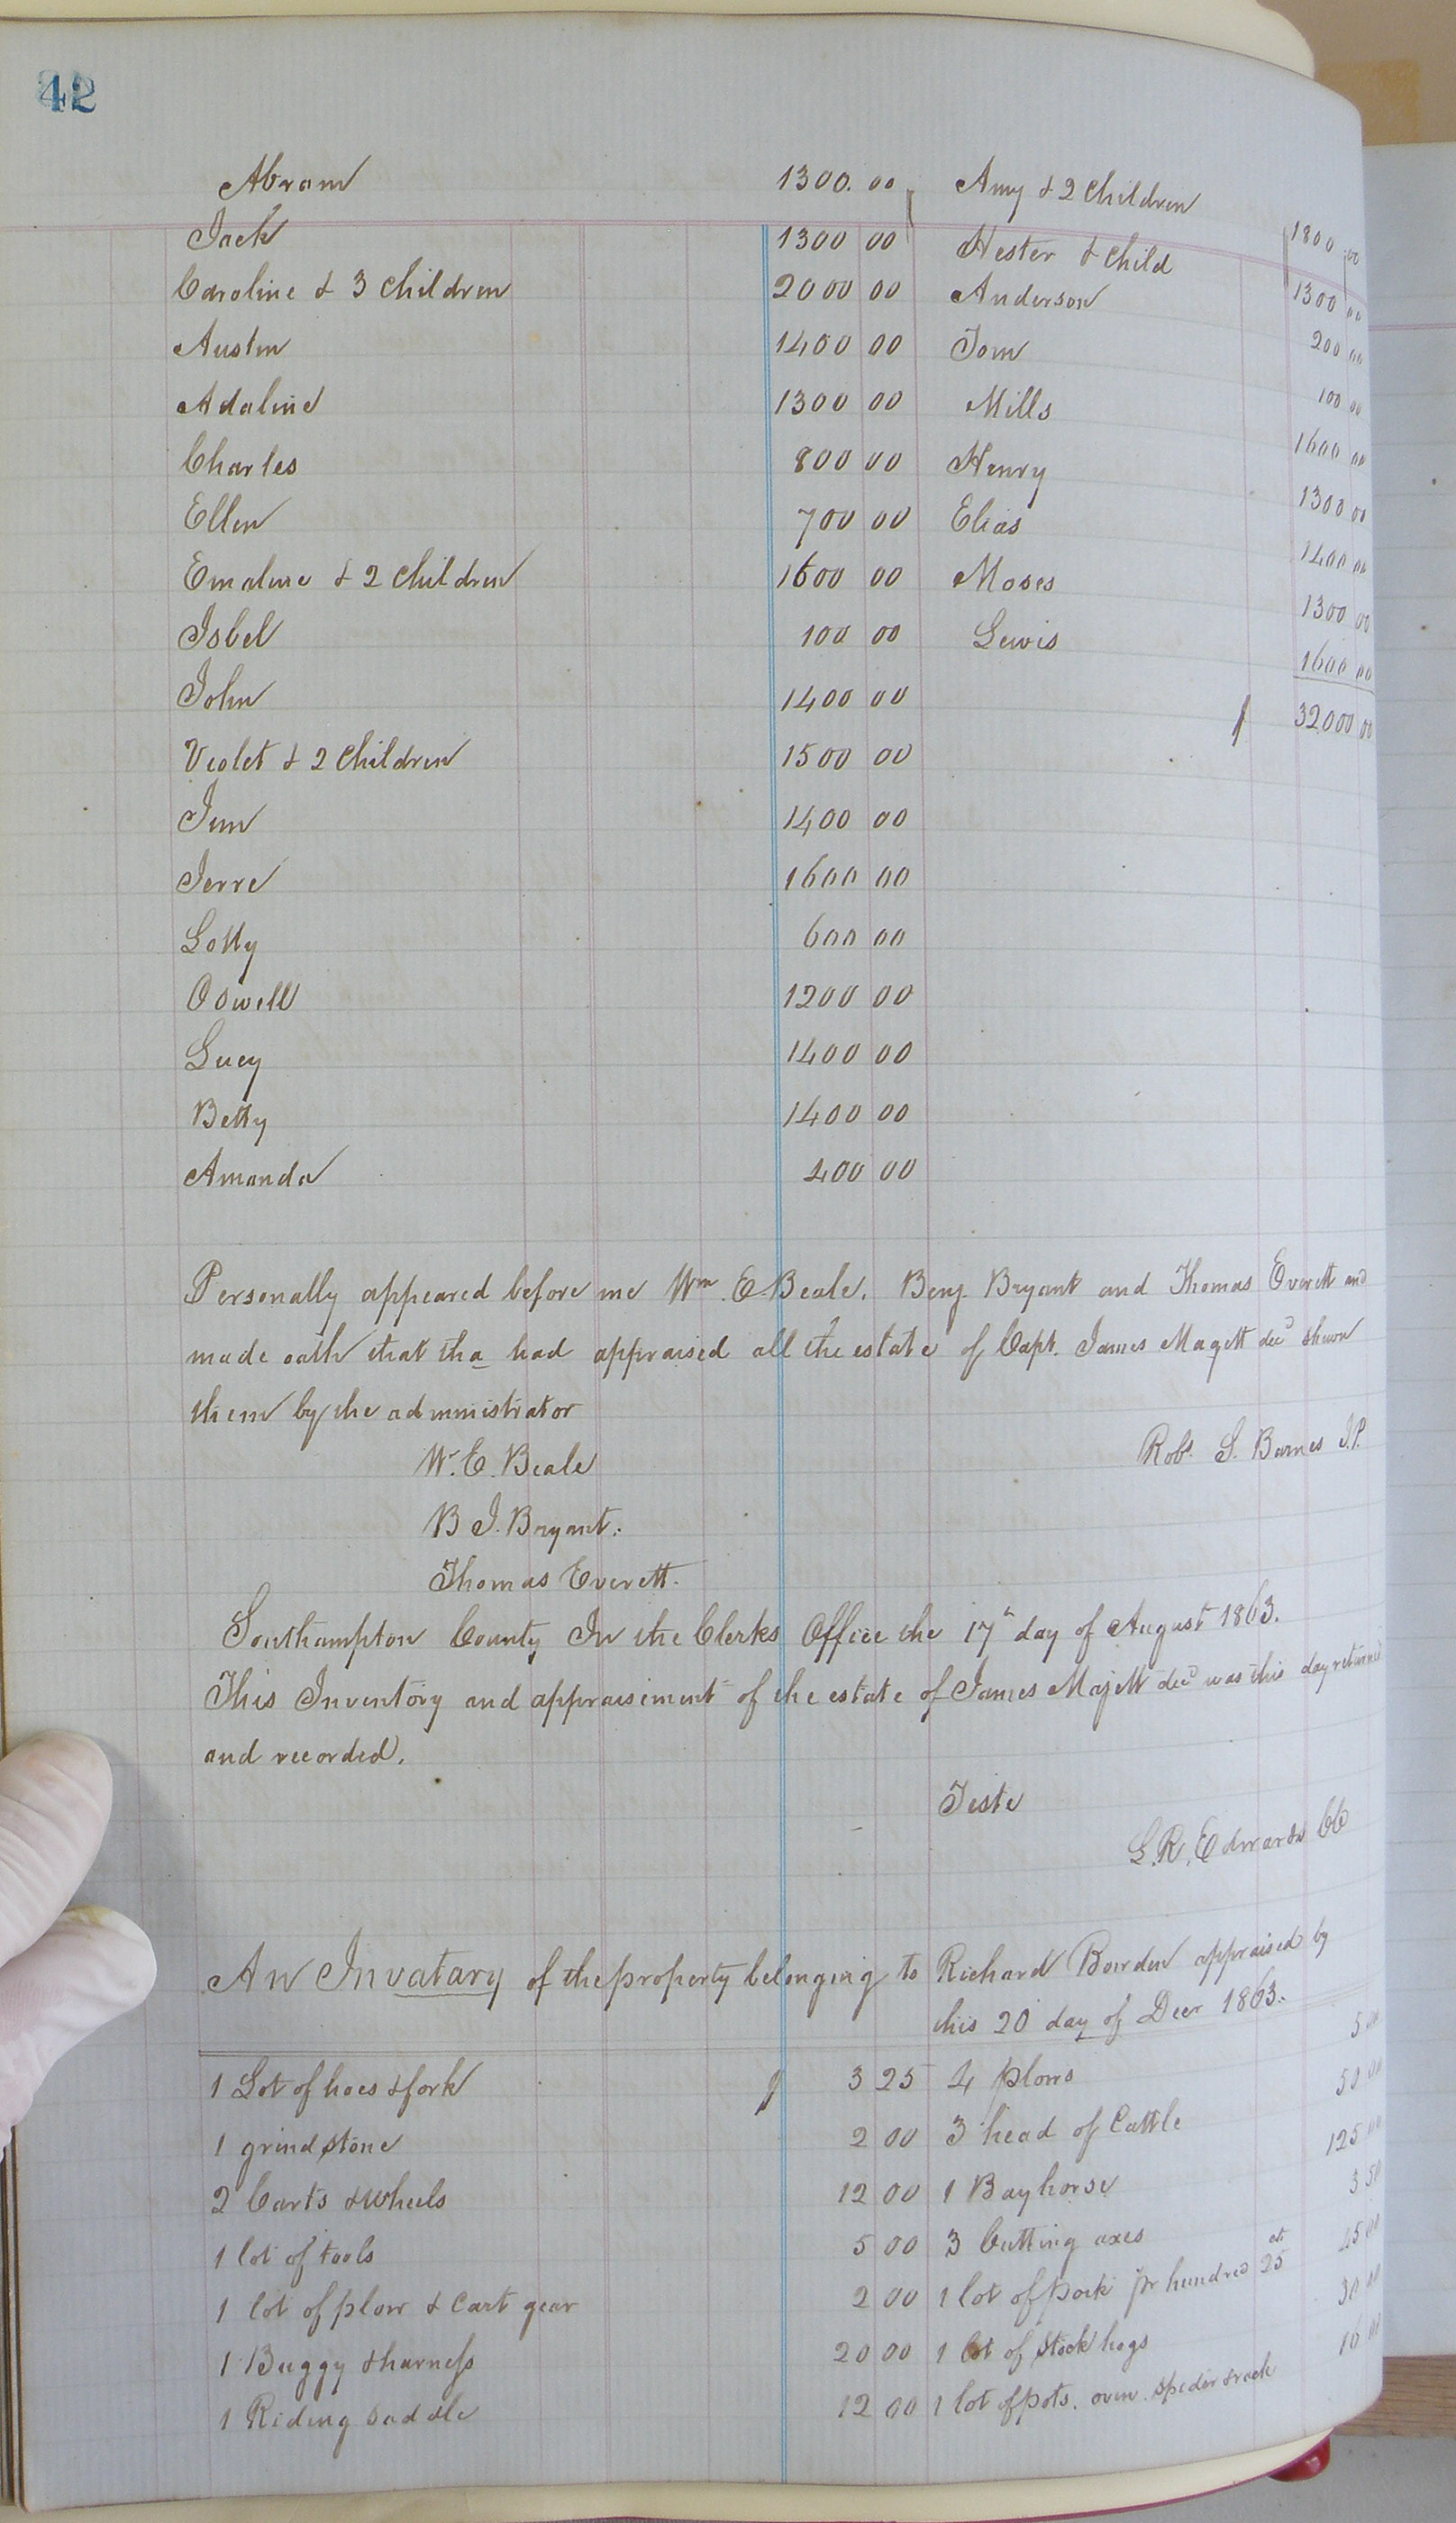 42
Abram 1300.00 Amy & 2 Children 1800 00
Jack 1300 00 Hester & Child 1300 00
Caroline & 3 Children 2000 00 Anderson 200 00
Austin 1400 00 Tom 100 00
Adaline 1300 00 Mills 1600 00
Charles 800 00 Henry 1300 00
Ellen 700 00 Elias 1400 00
Emaline & 2 Children 1600 00 Moses 1300 00
Isbel 100 00 Lewis 1600 00
John 1400 00 $ 32000 00
Violet & 2 Children 1500 00
Jim 1400 00
Jerre 1600 00
Lotty 600 00
Oswell 1200 00
Lucy 1400 00
Betty 1400 00
Amanda 400 00
Personally appeared before me Wm. E. Beale, Benj. Bryant and Thomas Everett and
made oath that tha had appraised all the estate of Capt. James Magett decd shown
them by the administrator
Robt. S. Barnes J.P.
W. E. Beale
B J. Bryant.
Thomas Everett.
Southampton County In the Clerks Office the 17th day of August 1863.
This Inventory and appraisement of the estate of James Majett decd was this day returned
and recorded.
Teste
L. R. Edwards CC
An Invatary of the property belonging to Richard Bowden appraised by
this 20 day of Decr 1863.
1 Lot of hoes & fork $ 3 25 4 plows 5 00
1 grindstone 2 00 3 head of Cattle 50 00
2 Carts & Wheels 12 00 1 Bay horse 125 00
1 lot of tools 5 00 3 Cutting axes 3 50
1 lot of plow & Cart gear 2 00 1 lot of pork pr hundred 25 cts 45 00
1 Buggy & harness 20 00 1 lot of Stock hogs 30 00
1 Riding saddle 12 00 1 lot of pots. oven. spider & rack 10 00